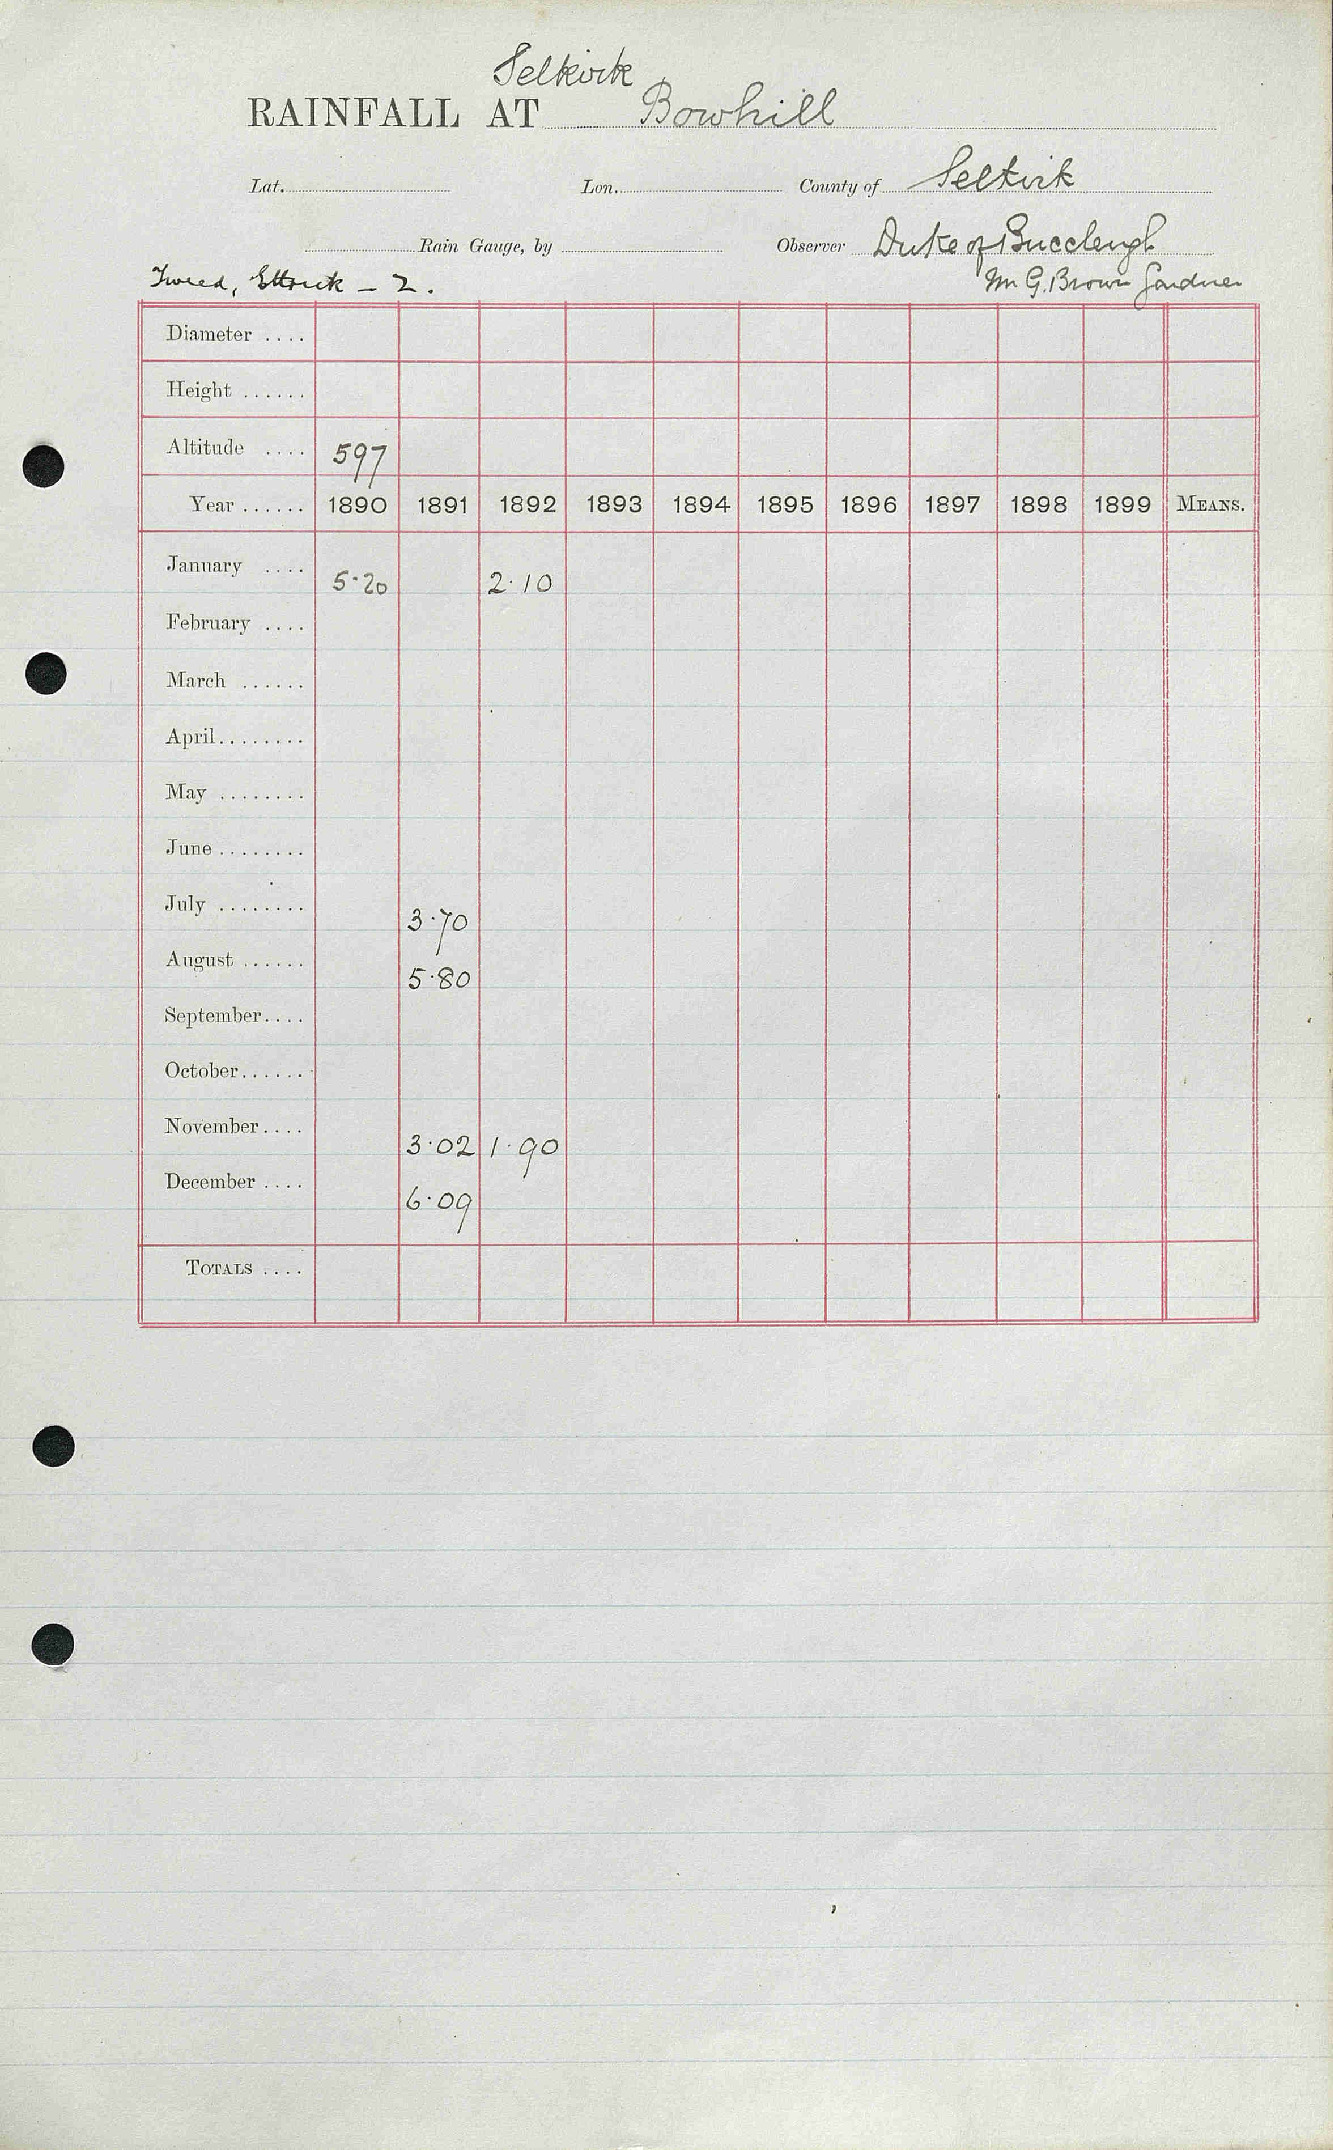 Selkirk
RAINFALL AT Bowhill
Lat. Lon. County of Selkirk
Rain Gauge, by Observer Duke of Buccleugh
Tweed, Ettrick - 2. Mr G. Brown Gardner
Diameter ....
Height ......
Altitude .... 597
Year ...... 1890 1891 1892 1893 1894 1895 1896 1897 1898 1899 MEANS.
January .... 5.20 2.10
February ....
March ......
April........
May ........
June ........
July ........ 3.70
August ...... 5.80
September....
October......
November.... 3.02 1.90
December .... 6.09
TOTALS ....